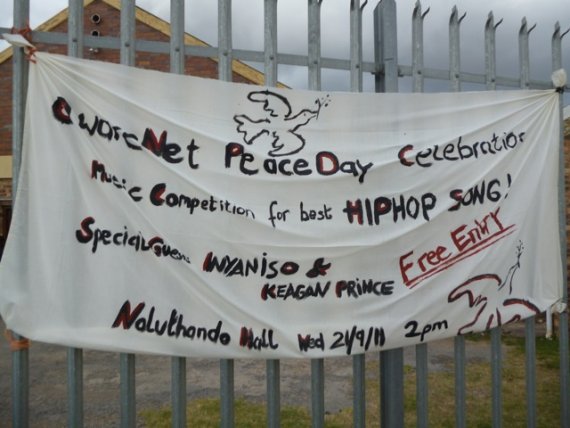 AwareNet Peace Day Celebration
Music Competition for best HIPHOP SONG!
Special Guests INYANISO &
KEAGAN PRINCE
Free Entry
Noluthando Hall Wed 21/9/11 2pm